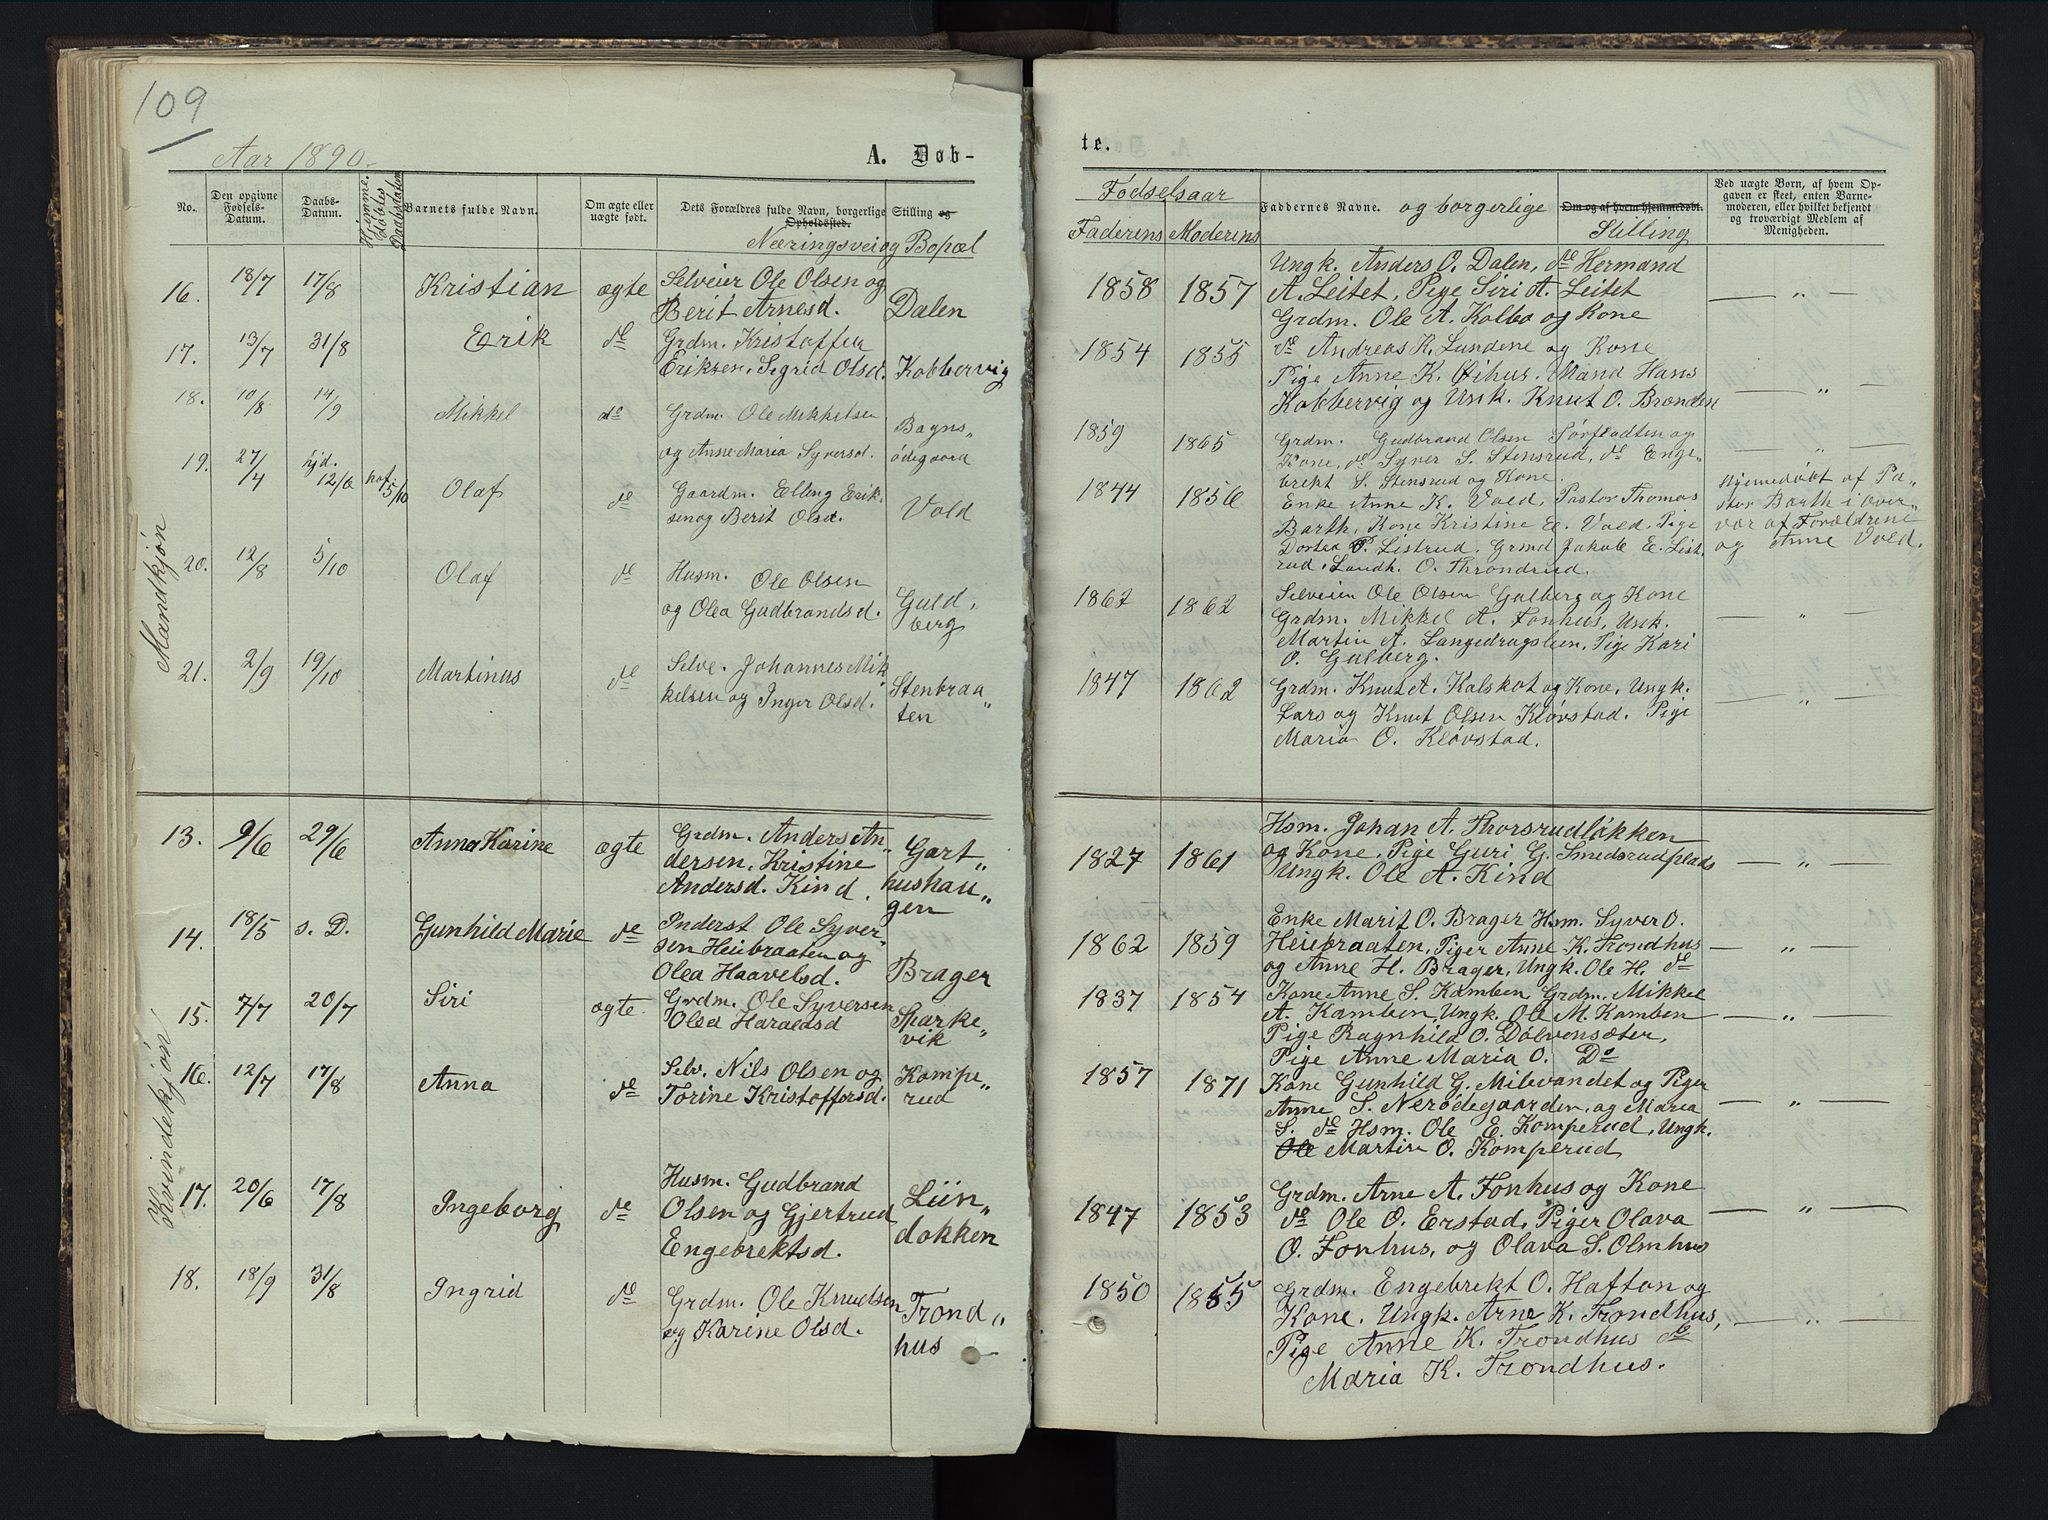 109
Aar 1890.
A. Døb-
No.
Den opgivne Fødsels-Datum.
Daabs-Datum.
Hjemme-døbtes Daabsdatum
Barnets fulde Navn.
Om ægte eller uægte født.
Dets Forældres fulde Navn, borgerlige Stilling og
Opholdssted.
Næringsvei og Bopæl
Mandkjøn
16. 18/7 17/8 Kristian ægte Selveier Ole Olsen og
Berit Arnesd. Dalen
17. 13/7 31/8 Erik do Grdm. Kristoffer
Eriksen, Sigrid Olsd. Kobbervig
18. 10/8 14/9 Mikkel do Grdm. Ole Mikkelsen
og Anne Maria Syversd. Bagns„
ødegaard
19. 27/4 hjd. 12/6 5/10 Olaf do Gaardm. Elling Erik-
sen og Berit Olsd. Vold
20. 12/8 5/10 Olaf do Husm. Ole Olsen
og Olea Gudbrandsd. Guld„
berg
21. 2/9 19/10 Martinus do Selve. Johannes Mik„
kelsen og Inger Olsd. Stenbraa„
ten
Kvindekjøn
13. 9/6 29/6 Anna Karine ægte Grdm. Anders An„
dersen, Kristine
Andersd. Kind. Gart„
hushau„
gen
14. 18/5 s. D. Gunhild Marie do Inderst Ole Syver-
sen Heiebraaten og
Olea Haavelsd. Brager
15. 7/7 20/7 Siri ægte Grdm. Ole Syversen
Olea Haraldsd Sparke„
vik
16. 12/7 17/8 Anna do Selv. Nils Olsen og
Torine Kristoffersd. Kompe„
rud
17. 20/6 17/8 Ingeborg do Husm. Gudbrand
Olsen og Gjertrud
Engebrektsd. Liin„
dokken
18. 18/9 31/8 Ingrid do Grdm. Ole Knudsen
og Karine Olsd. Trond„
hus
te.
Fødselsaar
Faderens Moderens
Faddernes Navne. og borgerlige
Om og af hvem hjemmedøbt.
Stilling
Ved uægte Børn, af hvem Op-
gaven er skeet, enten Barne-
moderen, eller hvilket bekjendt
og troværdigt Medlem af
Menigheden.
1858 1857 Ungk. Anders O. Dalen, do Hermand
A. Leitet, Pige Siri A. Leitet
Grdm. Ole A. Kolbo og Kone
1854 1855 do Andreas K. Lundene og Kone
Pige Anne K. Øihus. Mand Hans
Kobbervig og Unk. Knut O. Brænden
1859 1865 Grdm. Gudbrand Olsen Sørfladten og
Kone, do Syver S. Stensrud, do Enge„
brekt S. Stensrud og Kone.
1844 1856 Enke Anne K. Vold, Pastor Thomas
Barth, Kone Kristine E. Vold, Pige
Dortea P. Listrud, Grmd Jakob E. List„
rud, Landh. O. Throndrud.
Hjemedøbt af Pa„
stor Barth i over„
vær af Forældrene
og Anne Vold.
1862 1862 Selveier Ole Olsen Gulberg og Kone
Grdm. Mikkel A. Fonhus, Unk.
Martin A. Langedragsleen, Pige Kari
O. Gulberg.
1847 1862 Grdm. Knut A. Kalskot og Kone, Ungk.
Lars og Knut Olsen Kløvstad. Pige
Maria O. Kløvstad.
1827 1861 Hsm. Johan A. Thorsrudløkken
og Kone, Pige Guri G. Smedsrudplads
Ungk. Ole A. Kind
1862 1859 Enke Marit O. Brager Hsm. Syver O.
Heiebraaten, Piger Anne K. Trondhus
og Anne H. Brager, Ungk. Ole H. do
1837 1854 Kone Anne S. Kamben Grdm. Mikkel
A. Kamben, Ungk. Ole M. Kamben
Pige Ragnhild O. Dølvensæter,
Pige Anne Maria O. Do
1857 1871 Kone Gunhild G. Milevandet og Piger
Anne S. Nerødegaarden, og Maria
S. do Hsm. Ole E. Komperud, Ungk.
Ole Martin O. Komperud
1847 1853 Grdm. Arne A. Fonhus og Kone
do Ole O. Erstad, Piger Olava
O. Fonhus, og Olava S. Olmhus
1850 1855 Grdm. Engebrekt O. Hafton og
Kone. Ungk. Arne K. Trondhus,
Pige Anne K. Trondhus do
Maria K. Trondhus.